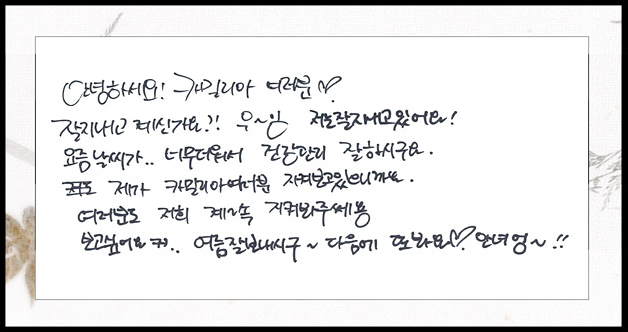 안녕하세요! 카밀리아 여러분♡
잘지내고 계신가요?! 우~앙 저는잘지내고있어요!
요즘날씨가.. 너무더워서 건강관리 잘하시구요.
저도 제가 카밀리아여러분 지켜보고있으니까요.
여러분도 저희 계속 지켜봐주세용
보고싶어요ㅋㅋ.. 여름잘보내시구~ 다음에 또봐요♡ 안녀엉~!!